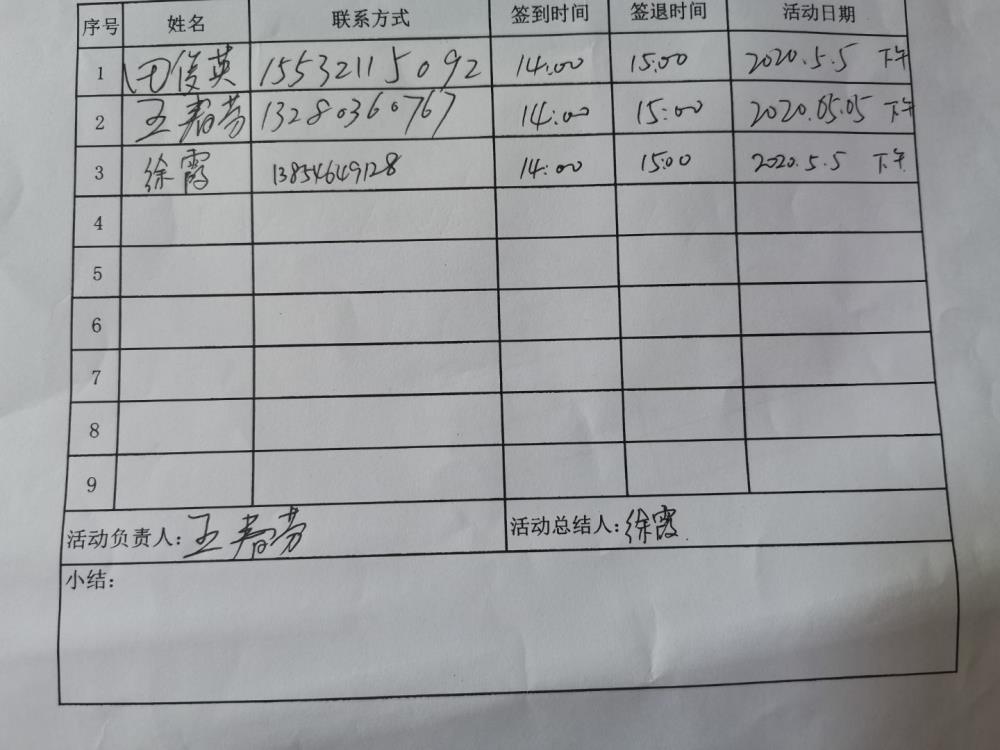 序号 姓名 联系方式 签到时间 签退时间 活动日期
1 田俊英 15532115092 14:00 15:00 2020.5.5 下午
2 王春芳 13280360767 14:00 15:00 2020.05.05 下午
3 徐霞 13854649128 14:00 15:00 2020.5.5 下午
4
5
6
7
8
9
活动负责人:王春芳 活动总结人:徐霞
小结: